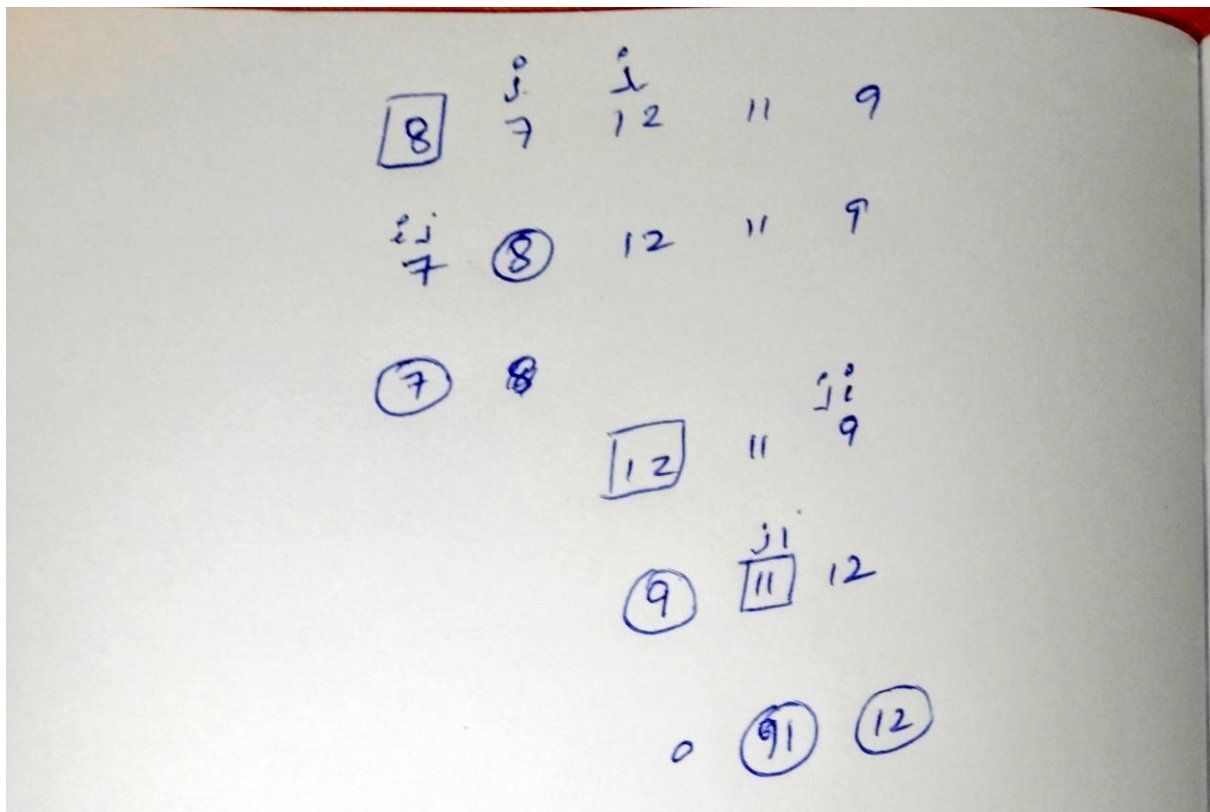 j i
8 7 12 11 9
i j
7 8 12 11 9
7 8
j i
12 11 9
j i
9 11 12
12